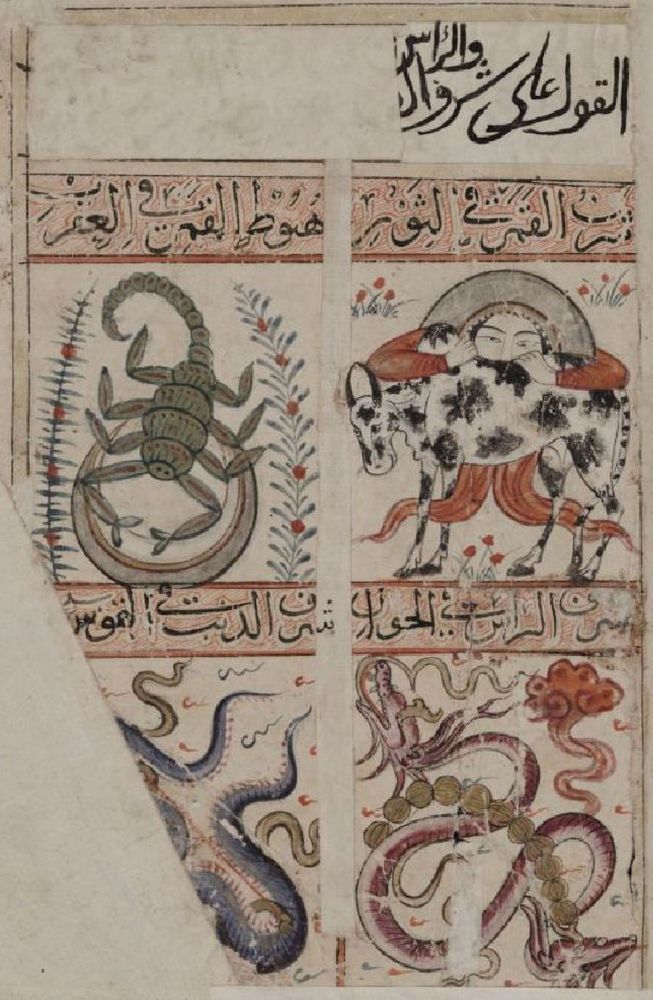 القول على شرف ال
والراس
شرف القمر في الثور
هبوط القمر في العقرب
شرف الراس في الجوزا
شرف الذنب في القوس